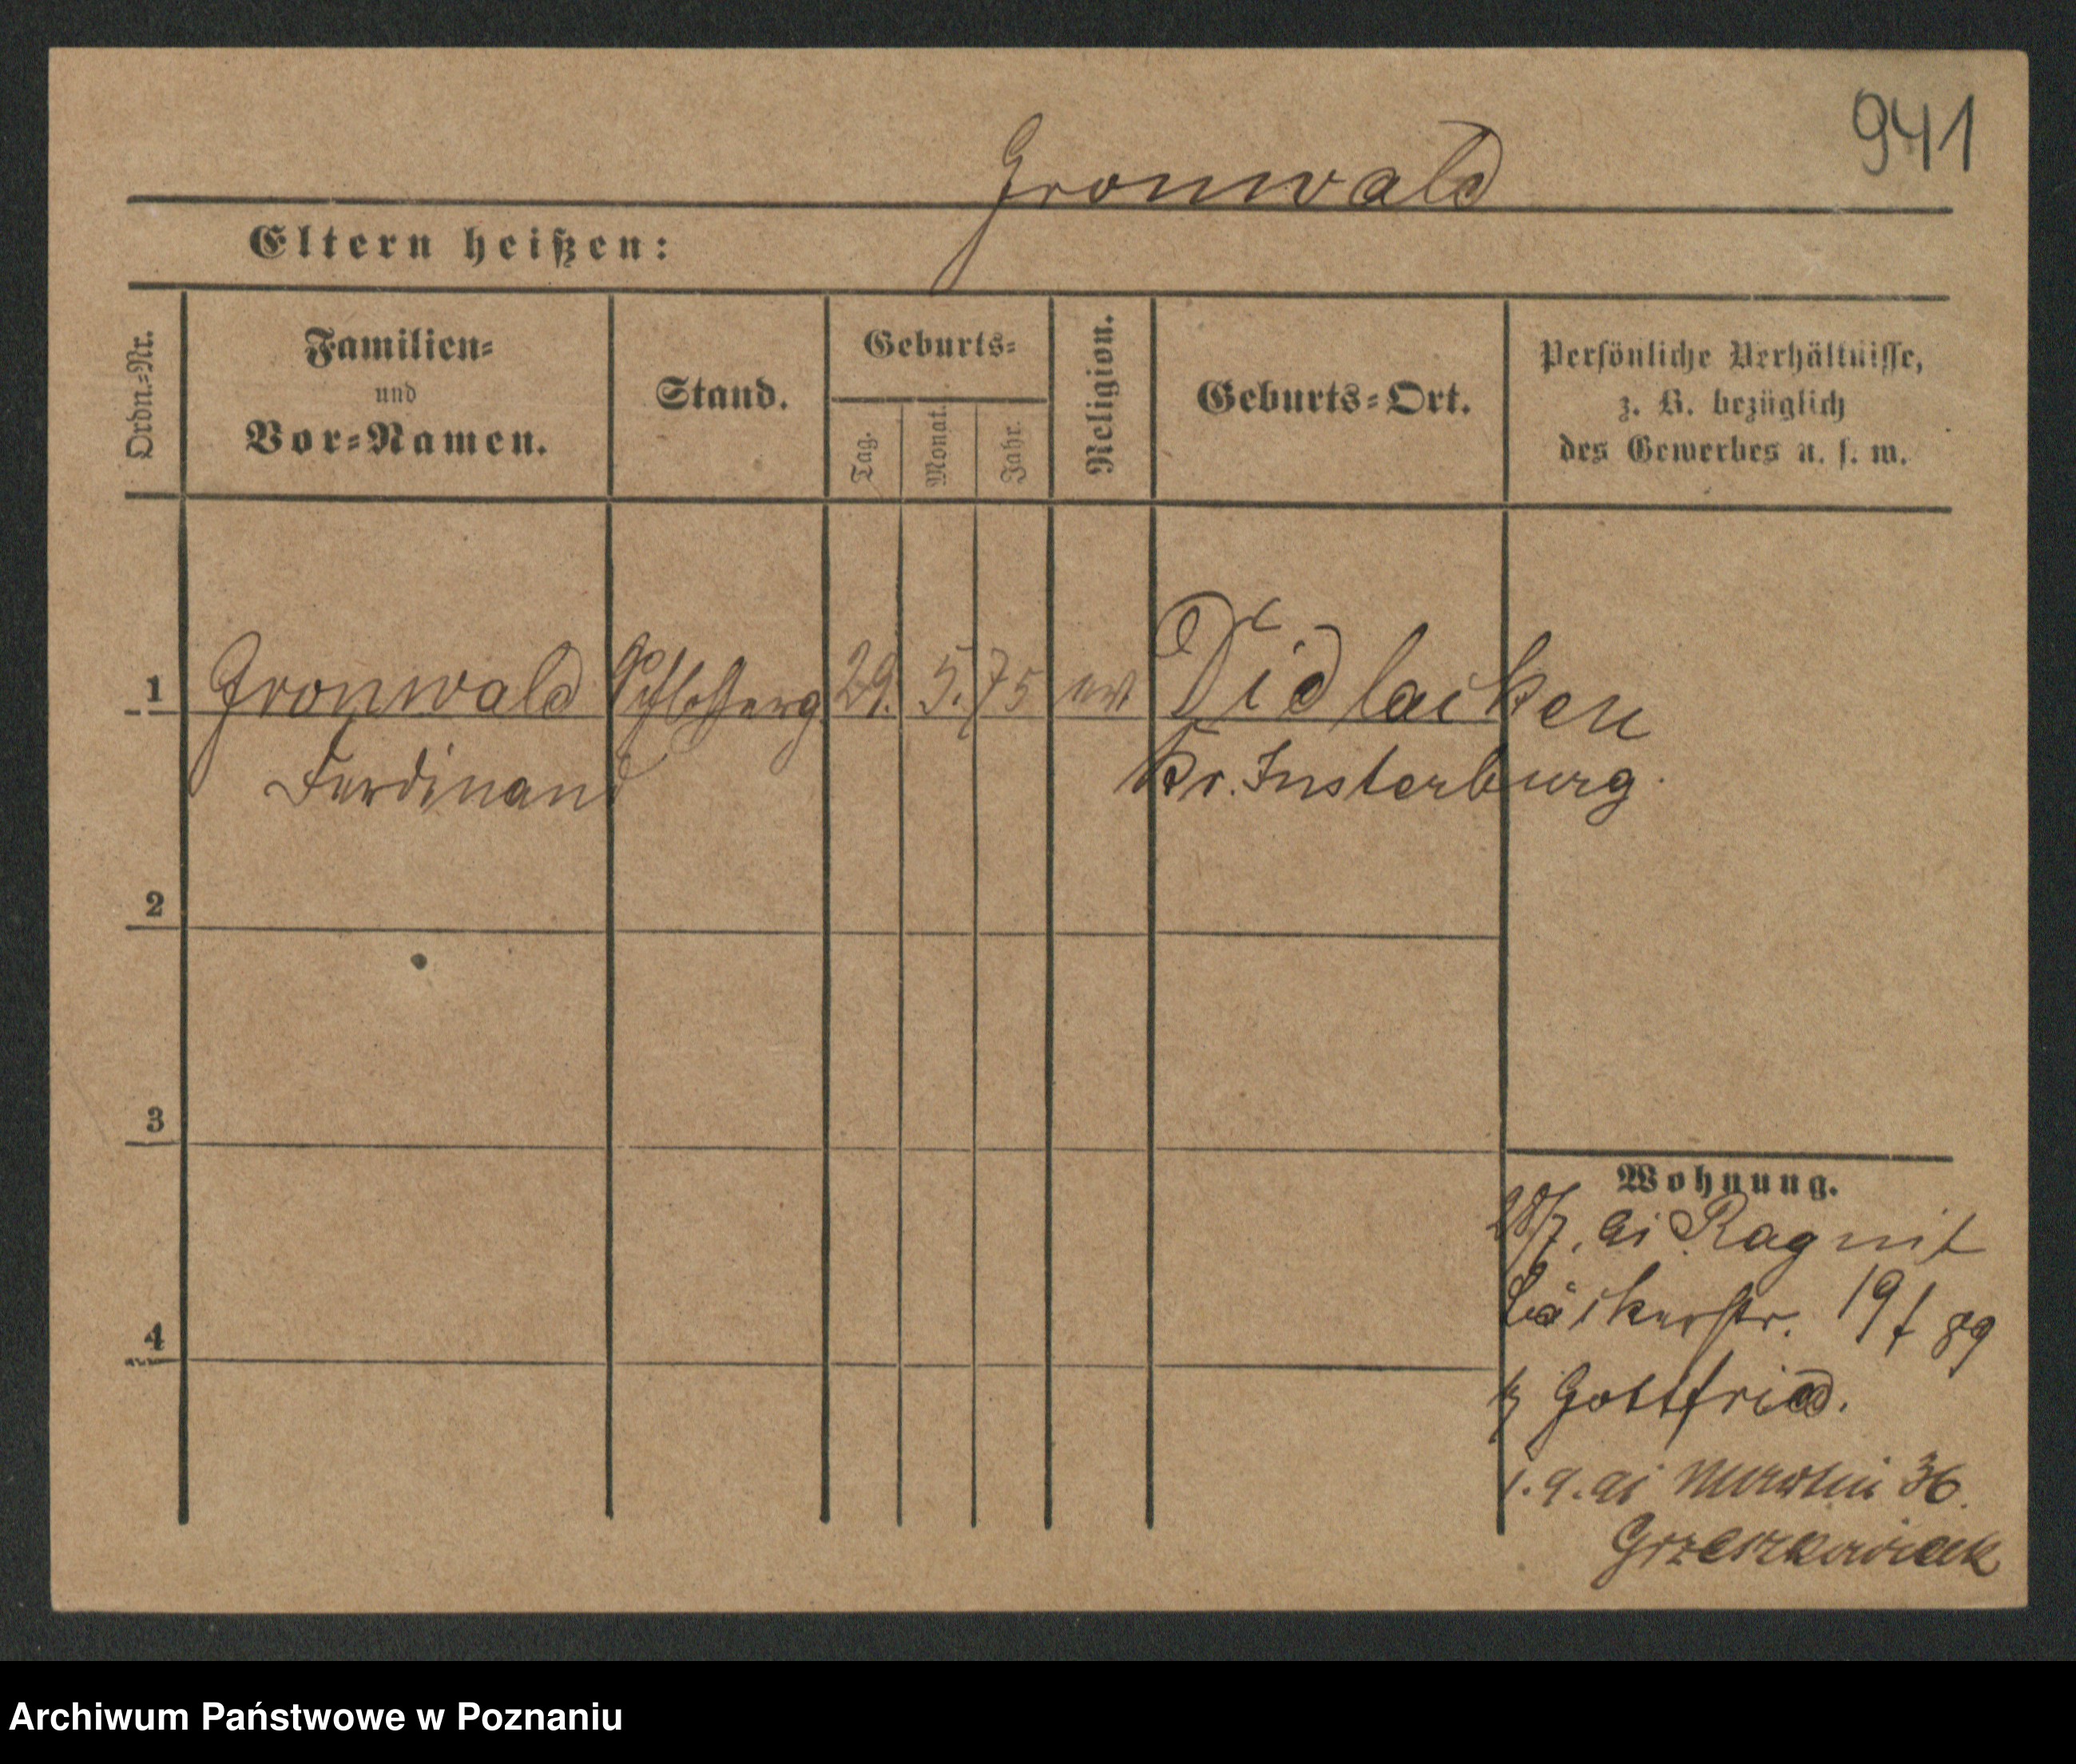 941
Gronwald
Eltern heißen:
Ordn.-Nr.
Familien-
und
Vor-Namen.
Stand.
Geburts-
Tag.
Monat.
Jahr.
Religion.
Geburts-Ort.
Persönliche Verhältnisse,
z. B. bezüglich
des Gewerbes u. s. w.
1 Gronwald Schlosserg 29. 5. 75 Didlacken
Ferdinand Kr. Insterburg.
2
3
4
Wohnung.
28/7. Ragnit
Bäckerstr. 19
Gottfried.
36.
Archiwum Państwowe w Poznaniu